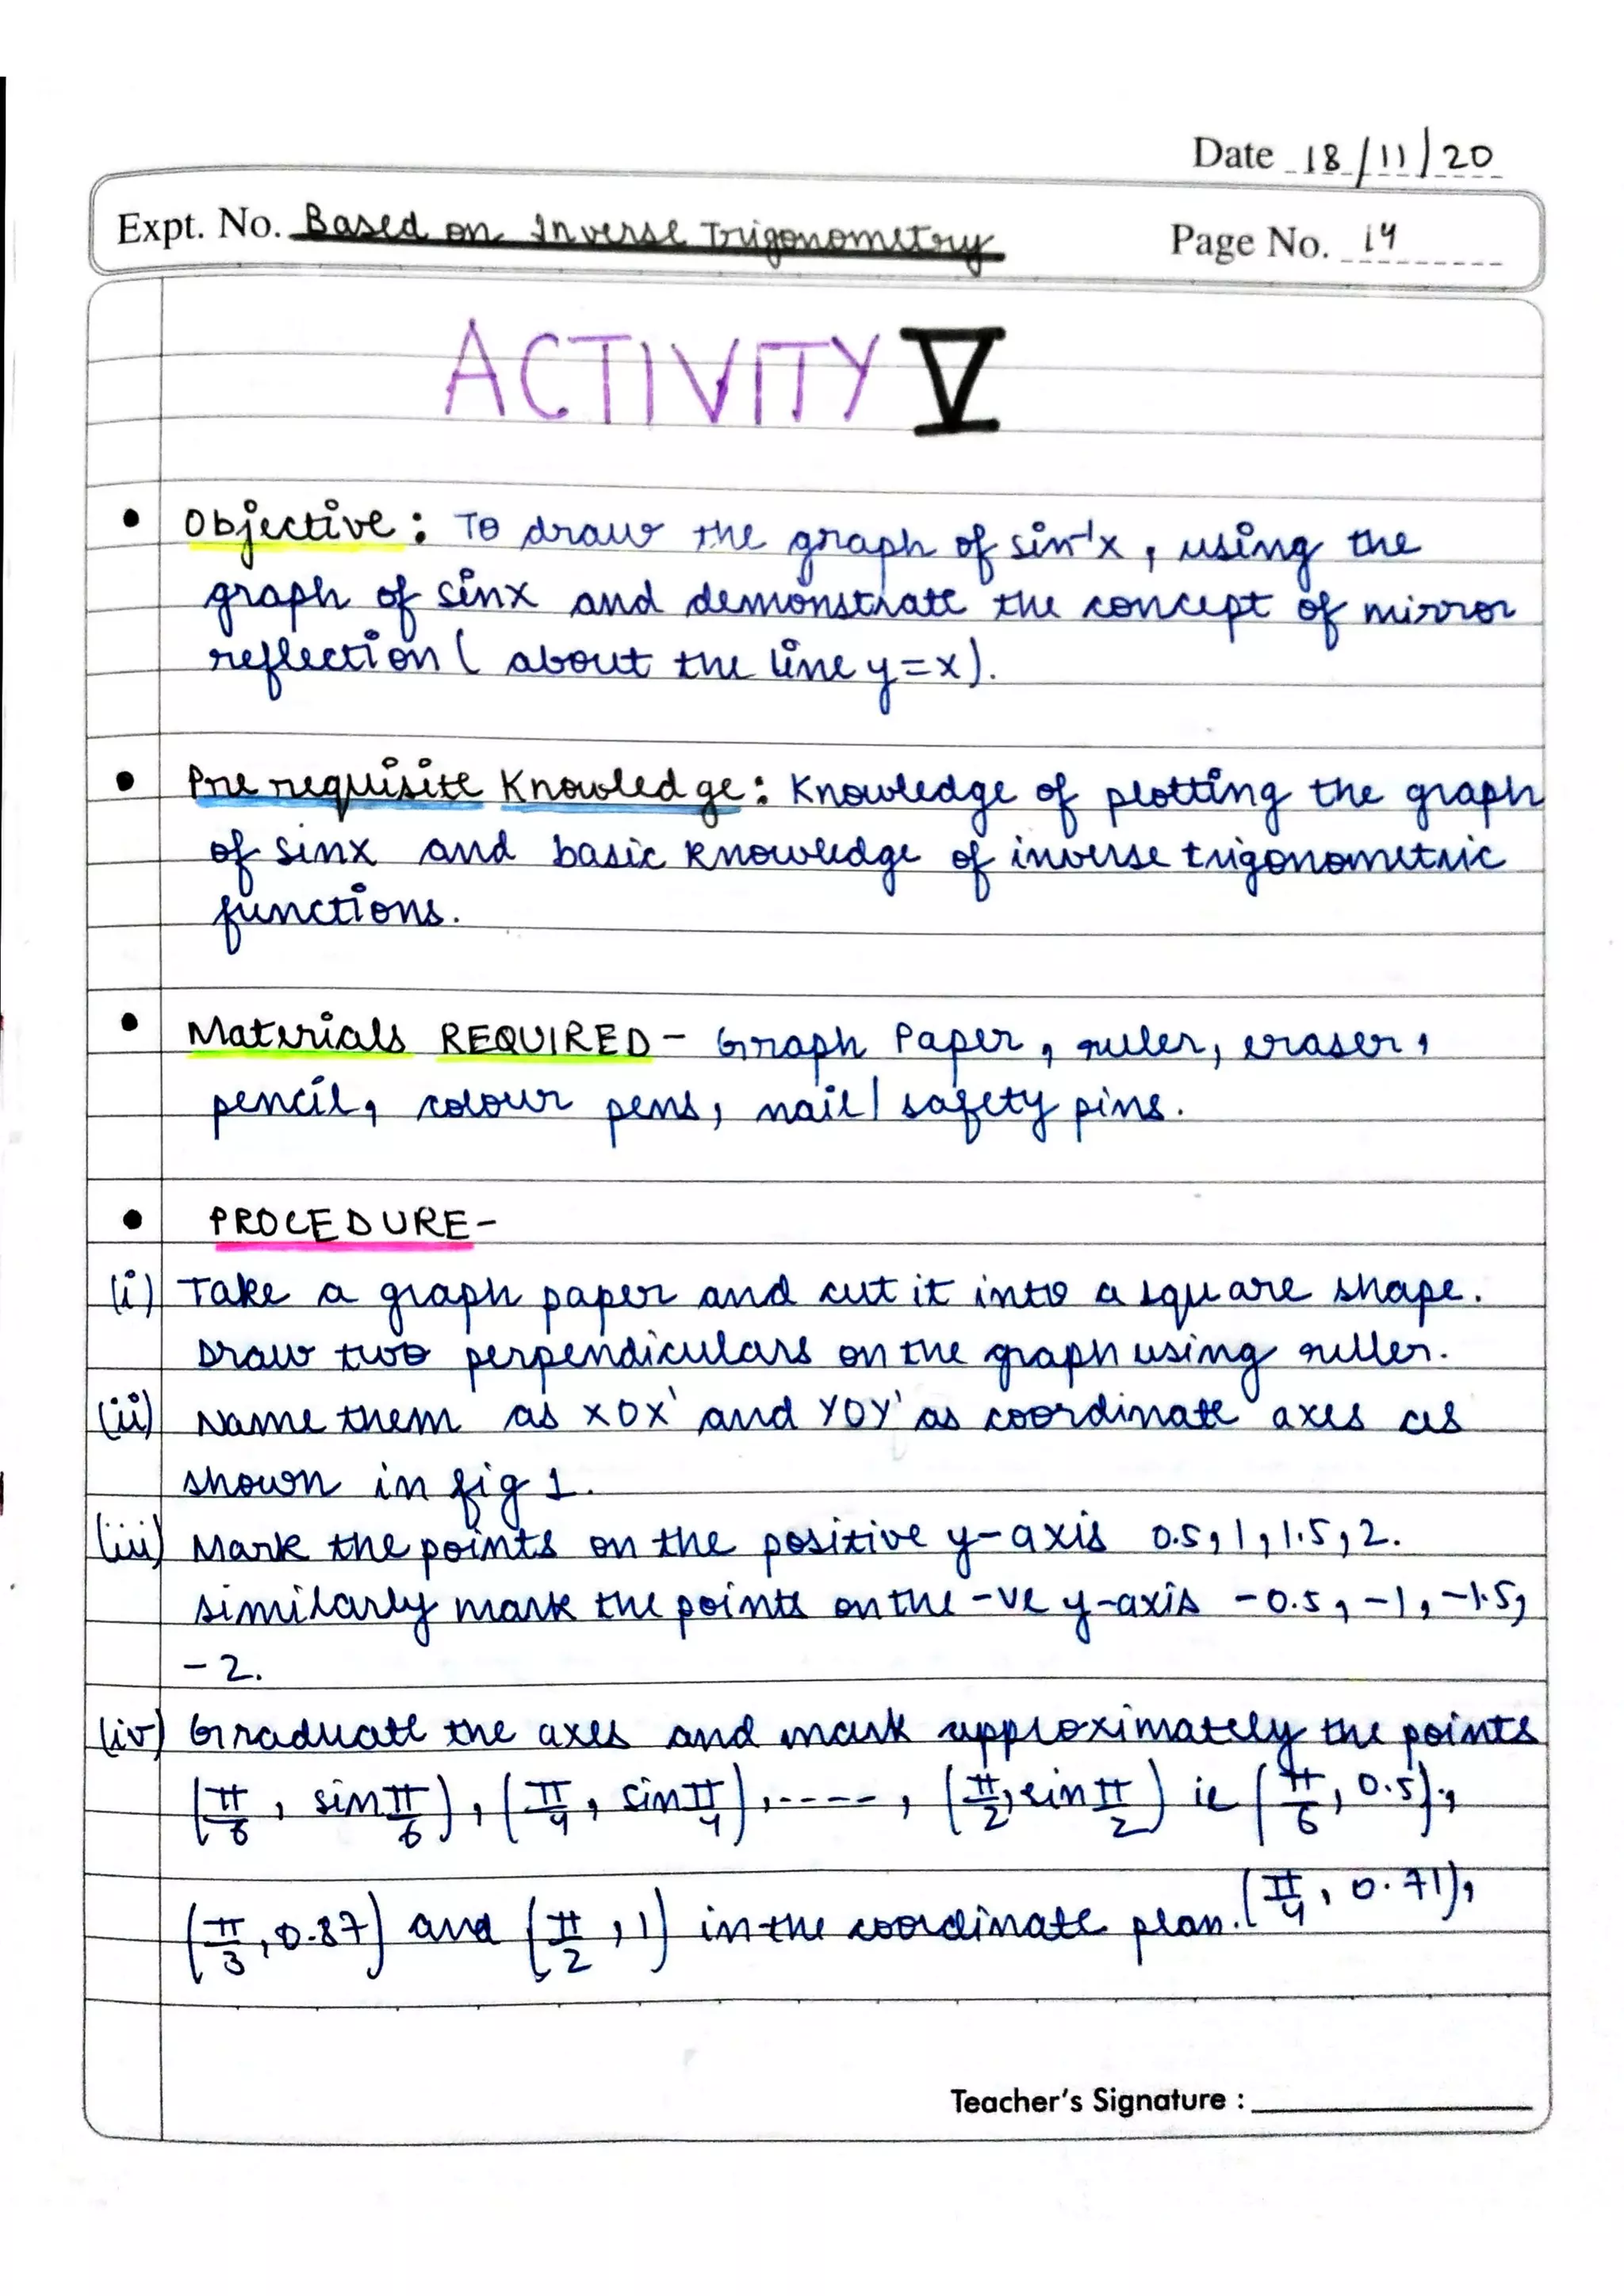 Date 18/11/20
Expt. No. Based on Inverse Trigonometry Page No. 14
ACTIVITY V
• Objective : To draw the graph of sin⁻¹x, using the
graph of sinx and demonstrate the concept of mirror
reflection ( about the line y=x).
• Pre requisite Knowledge: Knowledge of plotting the graph
of sinx and basic knowledge of inverse trigonometric
functions.
• Materials REQUIRED - Graph Paper, ruler, eraser,
pencil, colour pens, nail/ safety pins.
• PROCEDURE-
(i) Take a graph paper and cut it into a square shape.
Draw two perpendiculars on the graph using ruller.
(ii) Name them as XOX' and YOY' as coordinate axes as
shown in fig 1.
(iii) Mark the points on the positive y-axis 0.5, 1, 1.5, 2.
similarly mark the points on the -ve y-axis -0.5, -1, -1.5,
-2.
(iv) Graduate the axes and mark approximately the points
(π/6, sin π/6), (π/4, sin π/4), ----, (π/2, sin π/2) ie (π/6, 0.5),
(π/3, 0.87) and (π/2, 1) in the coordinate plan. (π/4, 0.71),
Teacher's Signature :